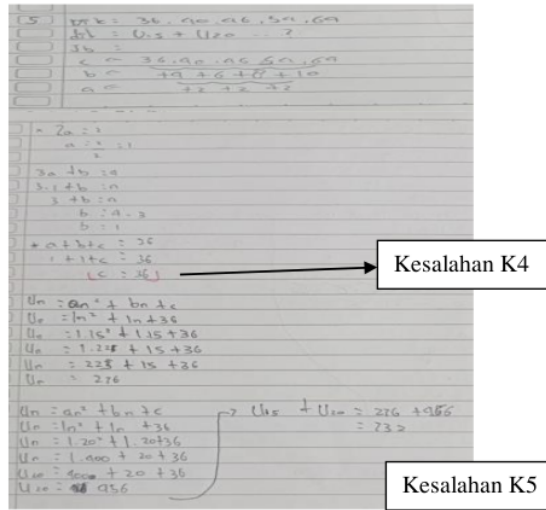 5 Dik = 36, 40, 46, 54, 64
Dit = U15 + U20 ... ?
Jb =
c = 36, 40, 46, 54, 64
b = +4 + 6 + 8 + 10
a = +2 +2 +2
* 2a = 2
a = 2/2 = 1
3a + b = 4
3.1 + b = 4
3 + b = 4
b = 4 - 3
b = 1
* a + b + c = 36
1 + 1 + c = 36
c = 36
Kesalahan K4
Un = an² + bn + c
Un = 1n² + 1n + 36
Un = 1.15² + 1.15 + 36
Un = 1.225 + 15 + 36
Un = 225 + 15 + 36
Un = 276
Un = an² + bn + c
Un = 1n² + 1n + 36
Un = 1.20² + 1.20 + 36
Un = 1.400 + 20 + 36
U20 = 400 + 20 + 36
U20 = 456
U15 + U20 = 276 + 456
= 732
Kesalahan K5